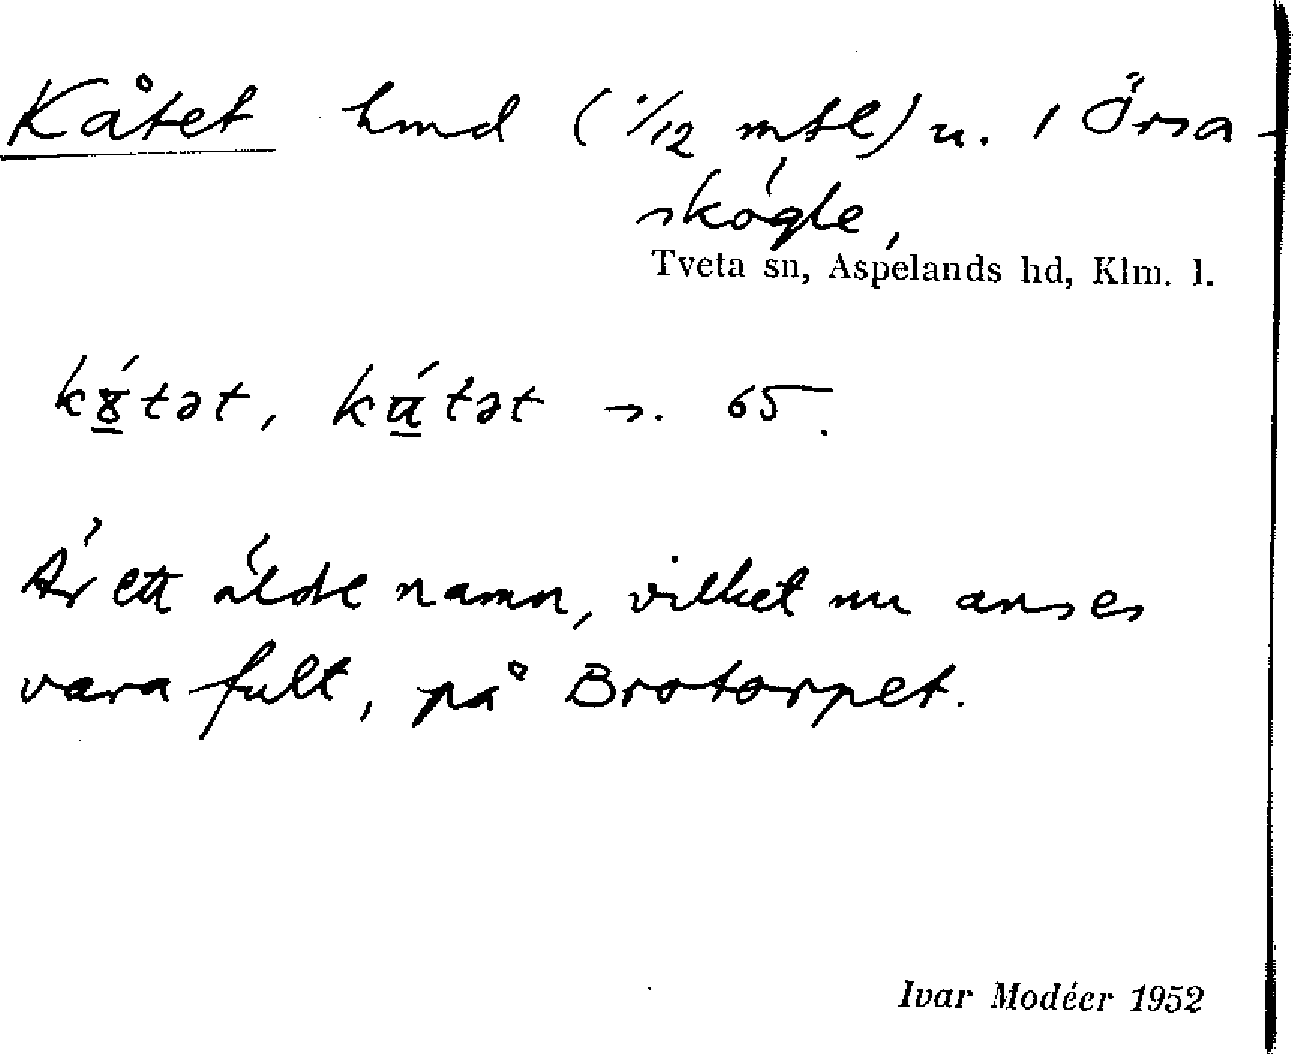 Kåtet hmd (1/12 mtl) u. 1 Örsa-
skógle,
Tveta sn, Aspelands hd, Klm. l.
kȣ́tət, kú̱tət s. 65.
Är ett äldre namn, vilket nu anses
vara fult, på Brotorpet.
Ivar Modéer 1952